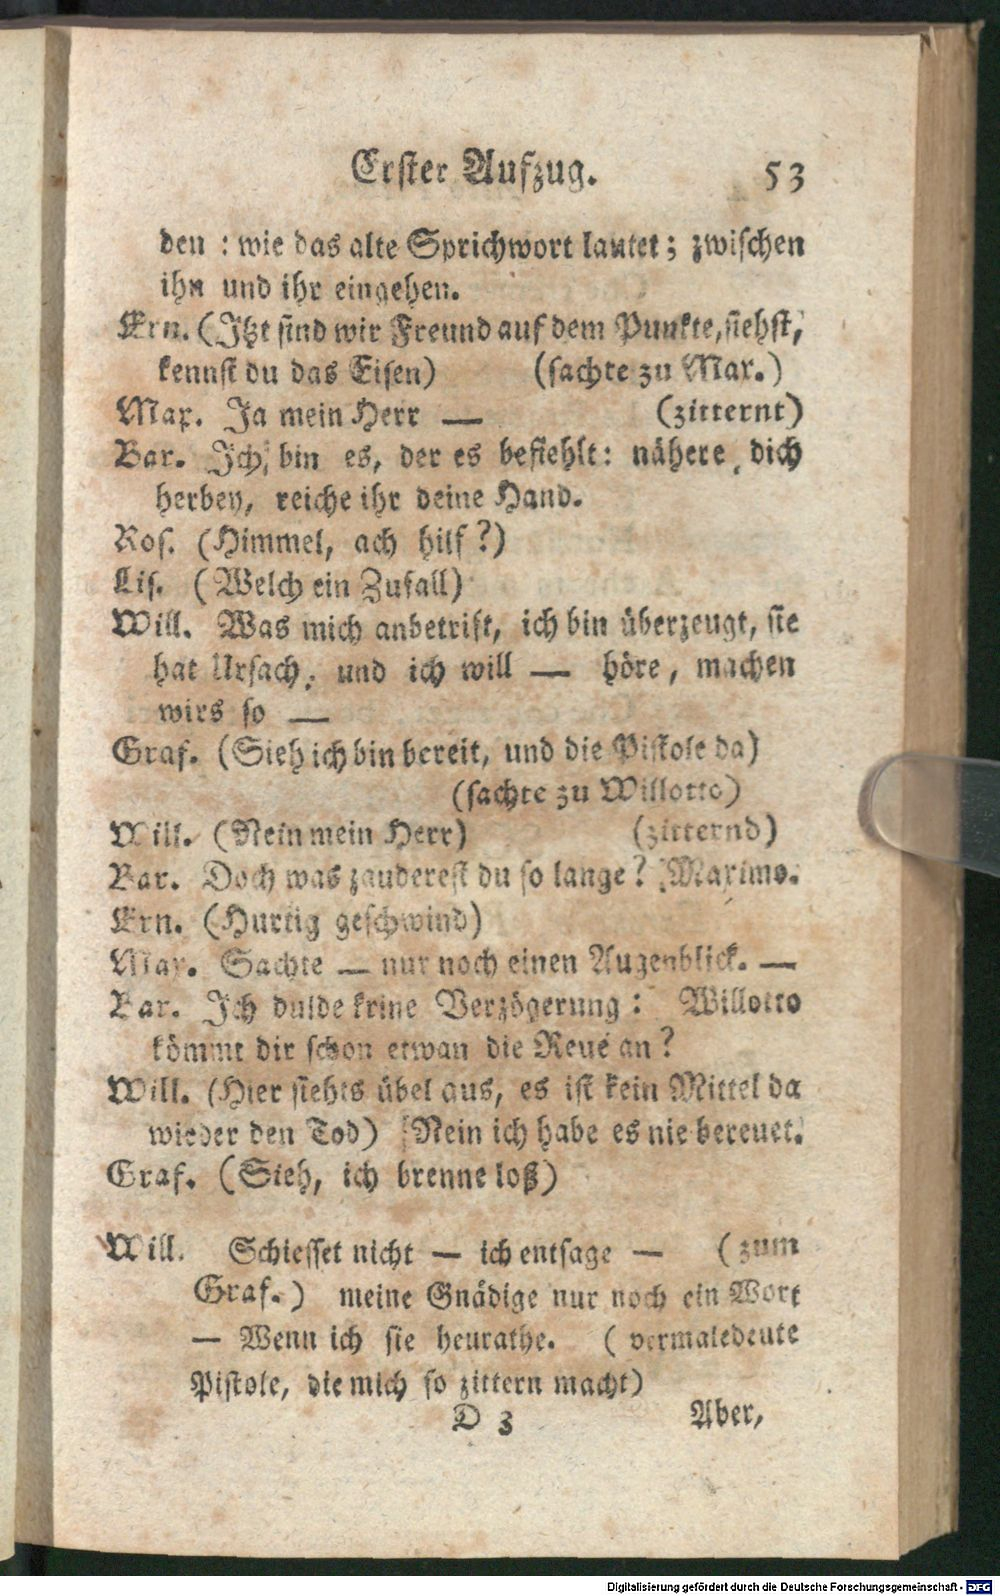 Erster Aufzug. 53
den : wie das alte Sprichwort lautet; zwischen
ihn und ihr eingehen.
Ern. (Itzt sind wir Freund auf dem Punkte, siehst,
kennst du das Eisen) (sachte zu Max.)
Max. Ja mein Herr — (zitternt)
Bar. Ich bin es, der es befiehlt: nähere dich
herbey, reiche ihr deine Hand.
Ros. (Himmel, ach hilf?)
Lis. (Welch ein Zufall)
Will. Was mich anbetrift, ich bin überzeugt, sie
hat Ursach, und ich will — höre, machen
wirs so —
Graf. (Sieh ich bin bereit, und die Pistole da)
(sachte zu Willotto)
Will. (Nein mein Herr) (zitternd)
Bar. Doch was zauderest du so lange? Maximo.
Ern. (Hurtig geschwind)
Max. Sachte — nur noch einen Augenblick. —
Bar. Ich dulde keine Verzögerung: Willotto
kömmt dir schon etwan die Reue an?
Will. (Hier siehts übel aus, es ist kein Mittel da
wieder den Tod) Nein ich habe es nie bereuet.
Graf. (Sieh, ich brenne loß)
Will. Schiesset nicht — ich entsage — (zum
Graf.) meine Gnädige nur noch ein Wort
— Wenn ich sie heurathe. (vermaledeute
Pistole, die mich so zittern macht)
D 3 Aber,
Digitalisierung gefördert durch die Deutsche Forschungsgemeinschaft - DFG